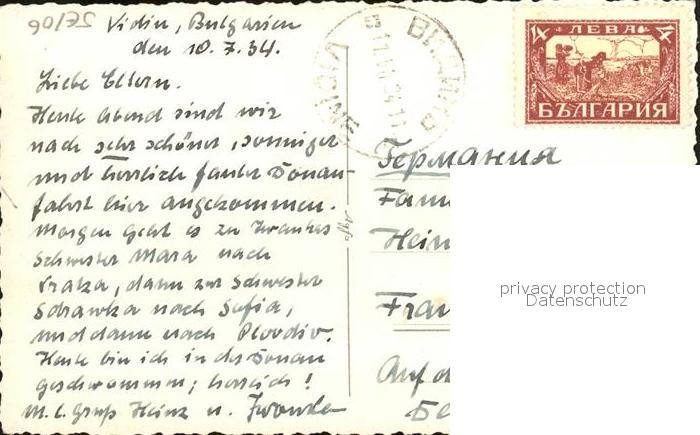 Vidin, Bulgarien
den 10.7.34.
Liebe Eltern.
Heute Abend sind wir
nach sehr schöner, sonniger
und herrlich fauler Donau-
fahrt hier angekommen.
Morgen geht es zu Iwankas
Schwester Mara nach
Vratza, dann zur Schwester
Sdrawka nach Sofia,
und dann nach Plovdiv.
Heute bin ich in der Donau
geschwommen; herrlich!
M. l. Gruß Heinz u. Iwanka
4 ЛЕВА 4
БЪЛГАРИЯ
ВИДИНЪ
VIDINE
Германия
Fam
Hein
Fran
Auf d
privacy protection
Datenschutz